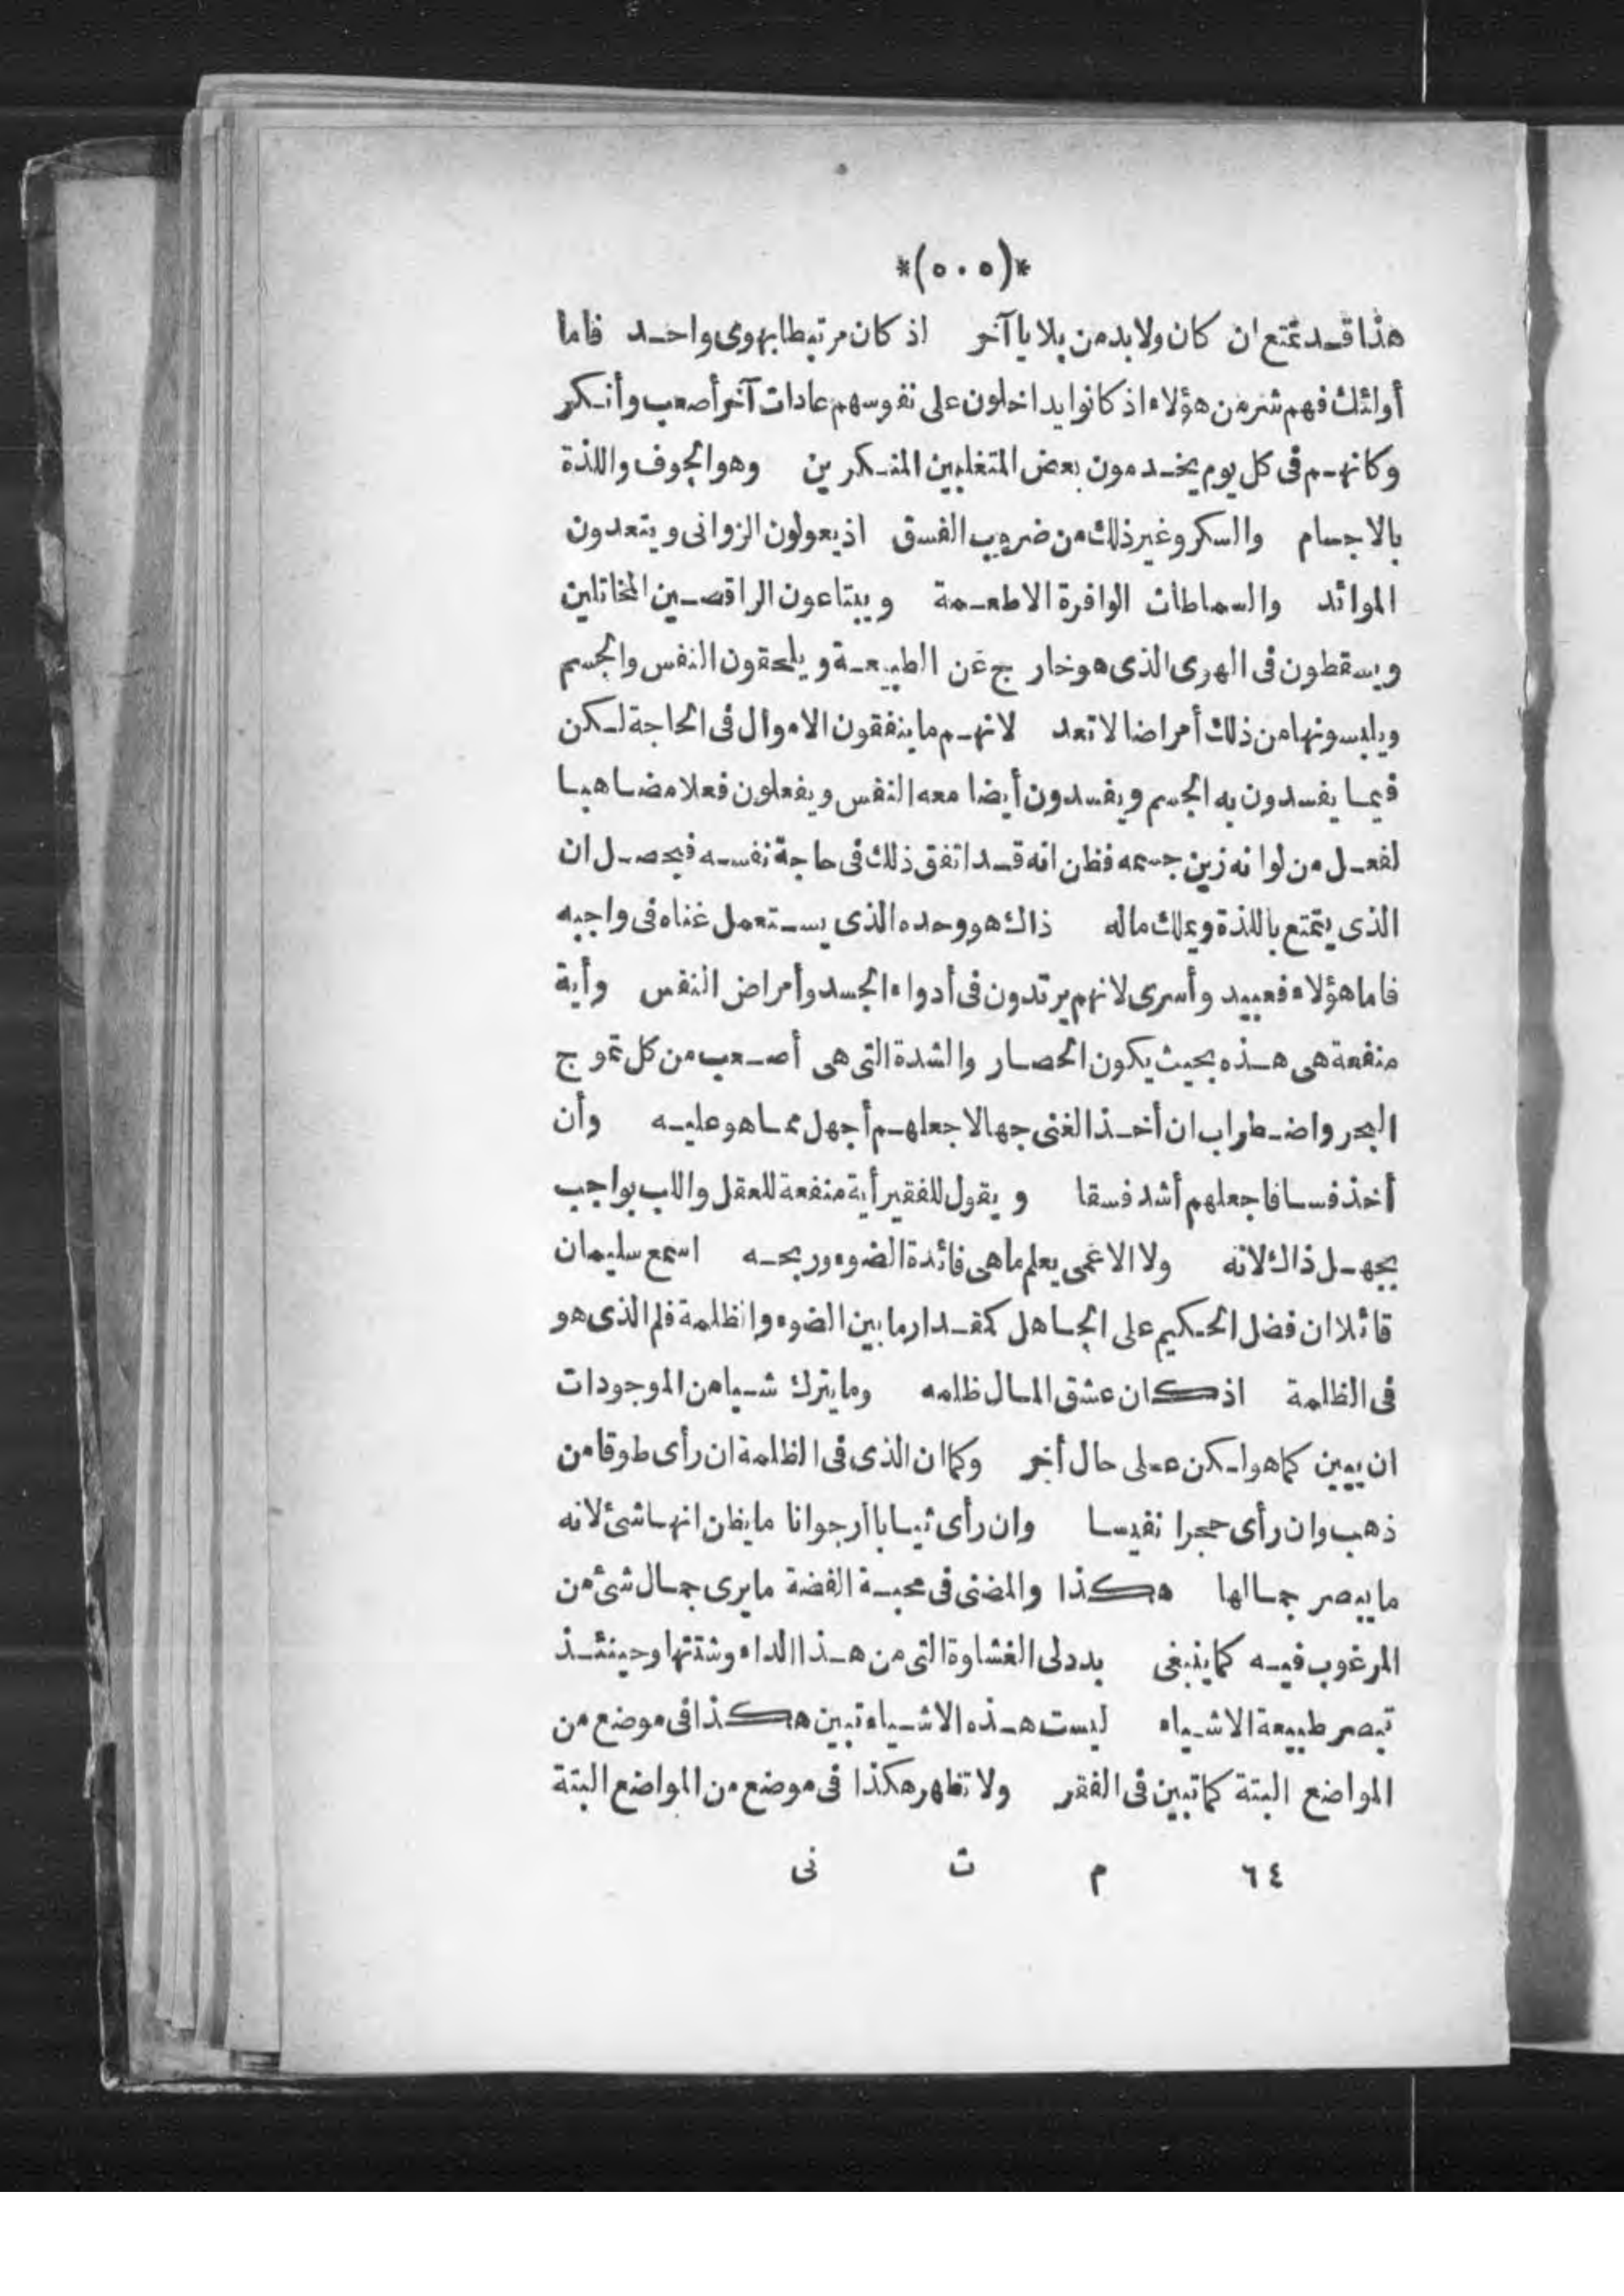 *(٥٠٥)*
هذا قد تمتع ان كان ولا بد من بلايا آخر اذ كان مرتبطا بهوى واحد فاما
أولئك فهم شر من هؤلاء اذ كانوا يداخلون على نفوسهم عادات آخر أصعب وأنكر
وكانهم فى كل يوم يخدمون بعض المتغلبين المنكرين وهو الجوف واللذة
بالاجسام والسكر وغير ذلك من ضروب الفسق اذ يعولون الزوانى ويتعدون
الموائد والسماطات الوافرة الاطعمة ويبتاعون الراقصين المخاتلين
ويسقطون فى الهوى الذى هو خارج عن الطبيعة ويلحقون النفس والجسم
ويلبسونها من ذلك أمراضا لا تعد لانهم ما ينفقون الاموال فى الحاجة لكن
فيما يفسدون به الجسم ويفسدون أيضا معه النفس ويفعلون فعلا مضاهيا
لفعل من لو انه زين جسمه فظن انه قد اتفق ذلك فى حاجة نفسه فيحصل ان
الذى يتمتع باللذة ويملك ماله ذاك هو وحده الذى يستعمل غناه فى واجبه
فاما هؤلاء فعبيد وأسرى لانهم يرتدون فى أدواء الجسد وأمراض النفس وأية
منفعة هى هذه بحيث يكون الحصار والشدة التى هى أصعب من كل تموج
البحر واضطراب ان أخذ الغنى جهالا جعلهم أجهل مما هو عليه وأن
أخذ فسافا جعلهم أشد فسقا ويقول للفقير أية منفعة للعقل واللب بواجب
يجهل ذاك لانه ولا الاعمى يعلم ما هى فائدة الضوء وربحه اسمع سليمان
قائلا ان فضل الحكيم على الجاهل كمقدار ما بين الضوء والظلمة فلم الذى هو
فى الظلمة اذ كان عشق المال ظلمه وما يترك شيا من الموجودات
ان يبين كما هو لكن على حال أخر وكما ان الذى فى الظلمة ان رأى طوقا من
ذهب وان رأى حجرا نفيسا وان رأى ثيابا ارجوانا ما يظن انها شئ لانه
ما يبصر جمالها هكذا والمضنى فى محبة الفضة ما يرى جمال شئ من
المرغوب فيه كما ينبغى بدد لى الغشاوة التى من هذا الداء وشتتها وحينئذ
تبصر طبيعة الاشياء ليست هذه الاشياء تبين هكذا فى موضع من
المواضع البتة كما تبين فى الفقر ولا تظهر هكذا فى موضع من المواضع البتة
٦٤ م ت نى